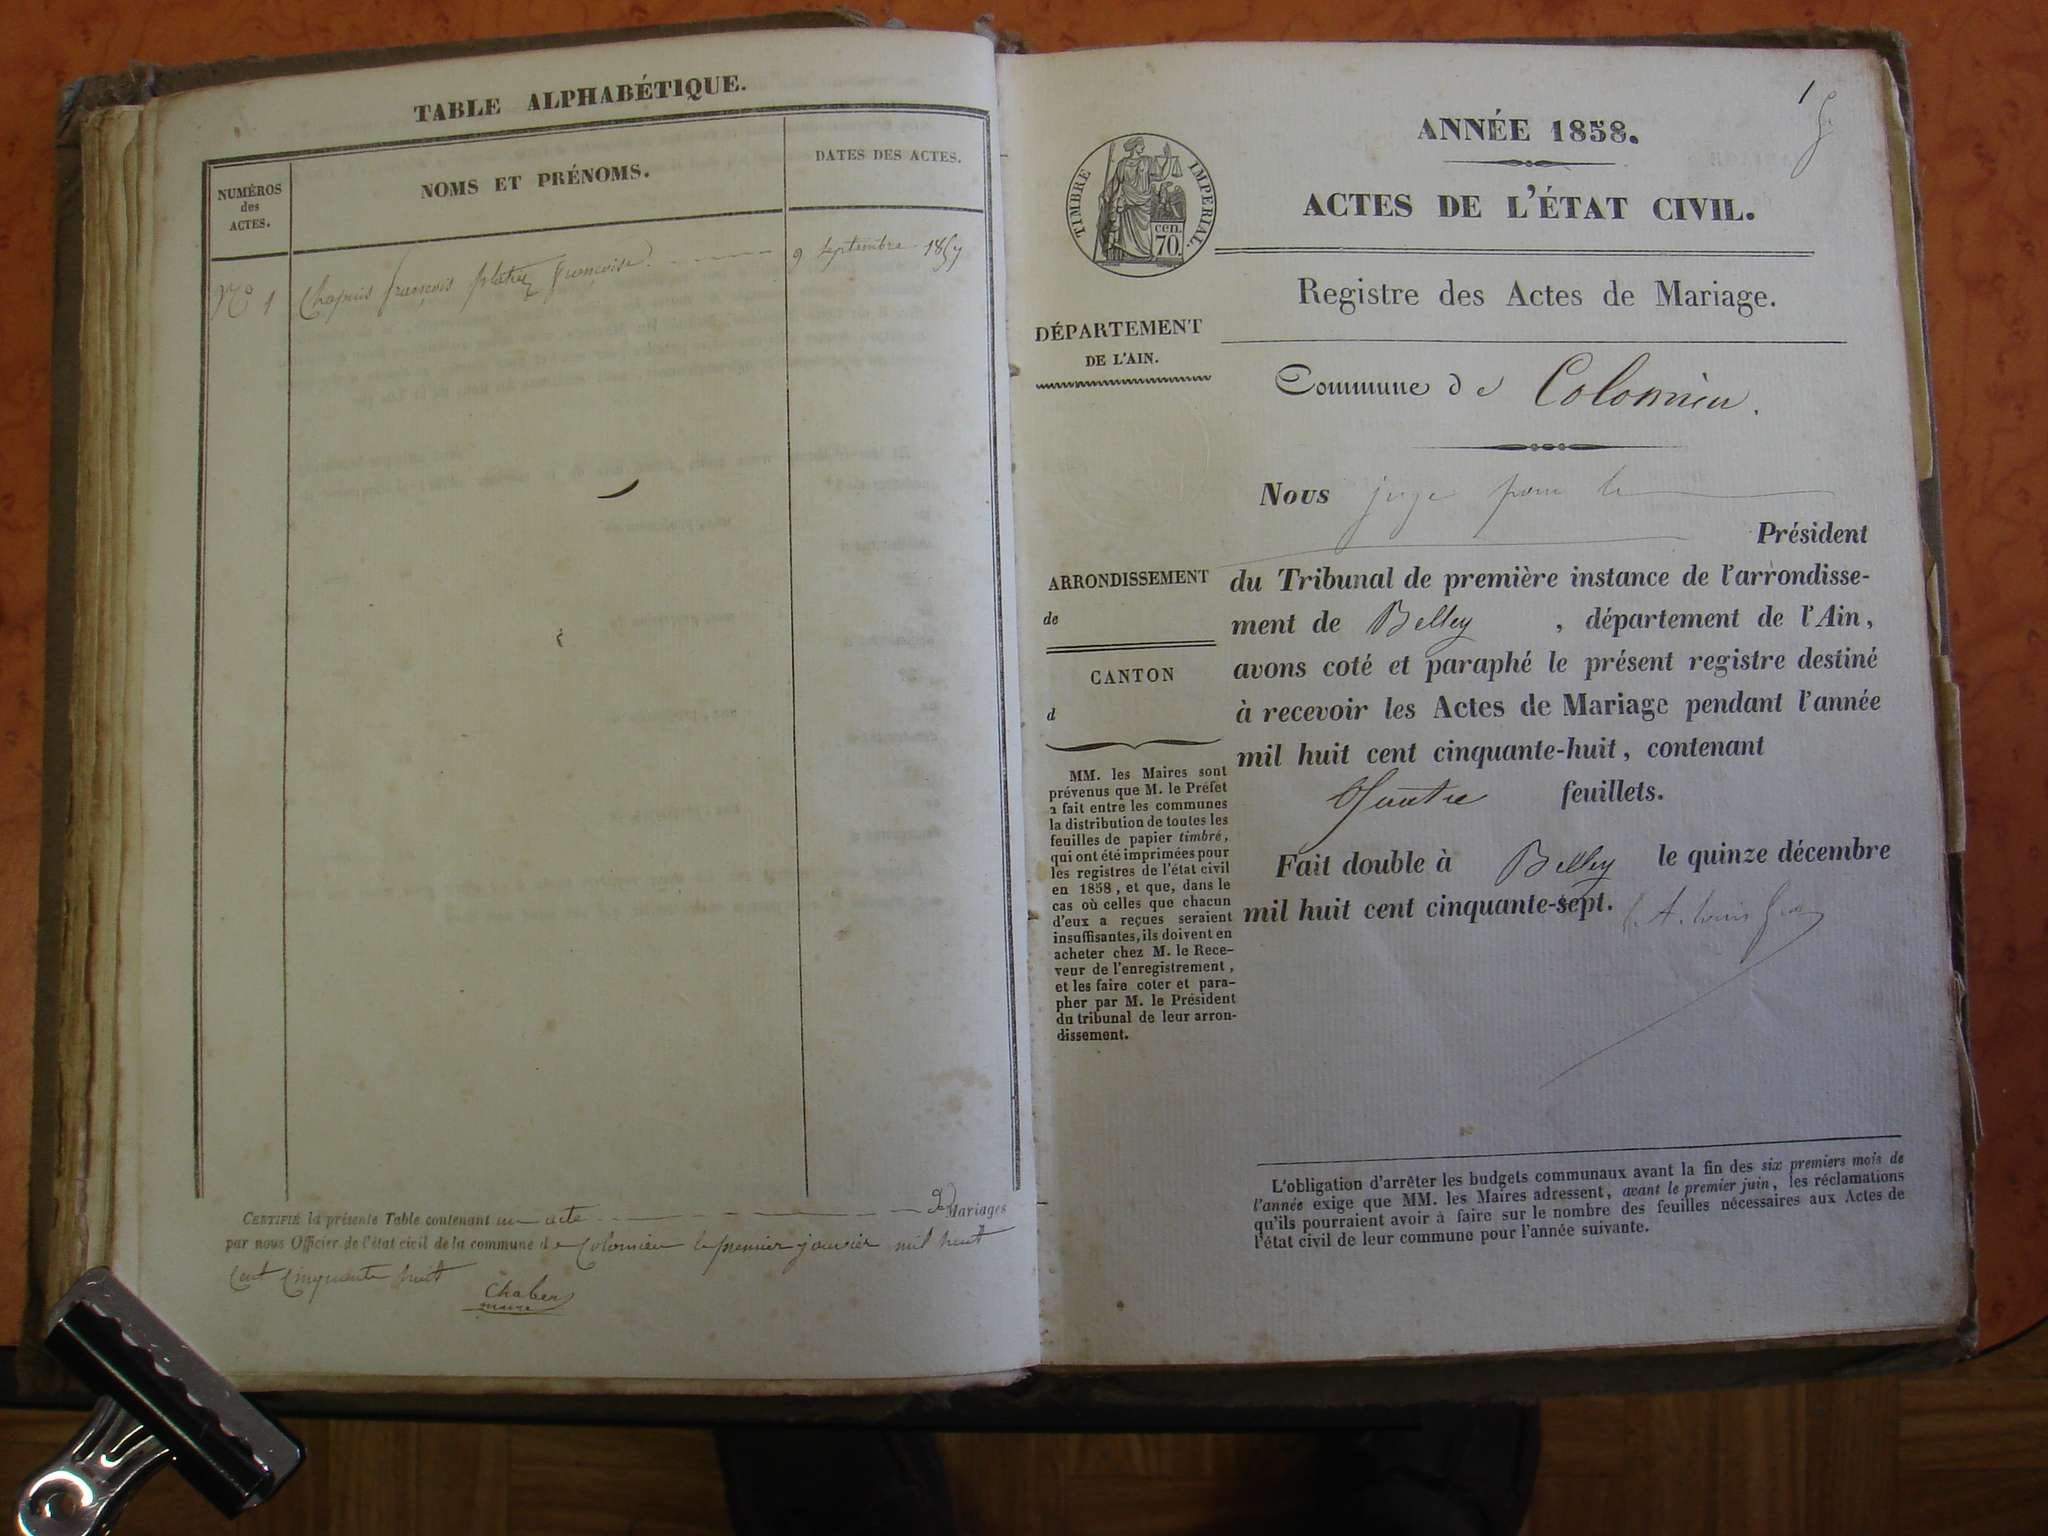 TABLE ALPHABÉTIQUE.
NUMÉROS
des
ACTES.
NOMS ET PRÉNOMS.
DATES DES ACTES.
No 1 Chapuis françois platrez françoise. 9 Septembre 1857
CERTIFIÉ la présente Table contenant un acte de Mariages
par nous Officier de l'état civil de la commune de Colomieu le premier janvier mil huit
Cent Cinquante huit
Chaber
maire
1
ANNÉE 1858.
ACTES DE L'ÉTAT CIVIL.
TIMBRE IMPERIAL.
cen.
70.
Registre des Actes de Mariage.
DÉPARTEMENT
DE L'AIN.
Commune de Colomieu.
Nous juge pour le
Président
du Tribunal de première instance de l'arrondisse-
ment de Belley , département de l'Ain,
avons coté et paraphé le présent registre destiné
à recevoir les Actes de Mariage pendant l'année
mil huit cent cinquante-huit, contenant
Quatre feuillets.
Fait double à Belley le quinze décembre
mil huit cent cinquante-sept.
ARRONDISSEMENT
de
CANTON
d
MM. les Maires sont
prévenus que M. le Préfet
a fait entre les communes
la distribution de toutes les
feuilles de papier timbré,
qui ont été imprimées pour
les registres de l'état civil
en 1858, et que, dans le
cas où celles que chacun
d'eux a reçues seraient
insuffisantes, ils doivent en
acheter chez M. le Rece-
veur de l'enregistrement,
et les faire coter et para-
pher par M. le Président
du tribunal de leur arron-
dissement.
L'obligation d'arrêter les budgets communaux avant la fin des six premiers mois de
l'année exige que MM. les Maires adressent, avant le premier juin, les réclamations
qu'ils pourraient avoir à faire sur le nombre des feuilles nécessaires aux Actes de
l'état civil de leur commune pour l'année suivante.